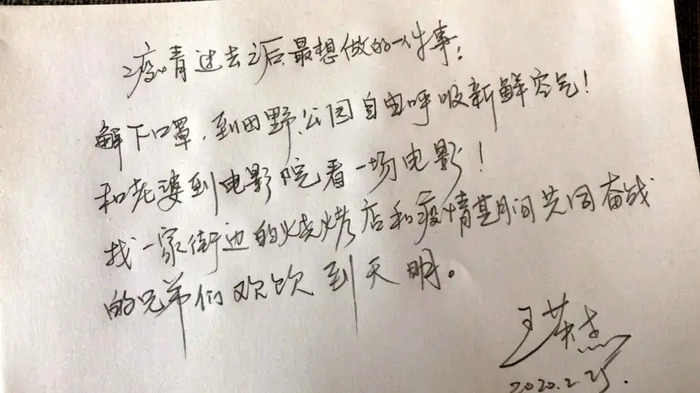 疫情过去之后最想做的一件事：
解下口罩，到田野、公园自由呼吸新鲜空气！
和老婆到电影院看一场电影！
找一家街边的烧烤店和疫情期间共同奋战
的兄弟们欢饮到天明。
王英杰
2020.2.25.